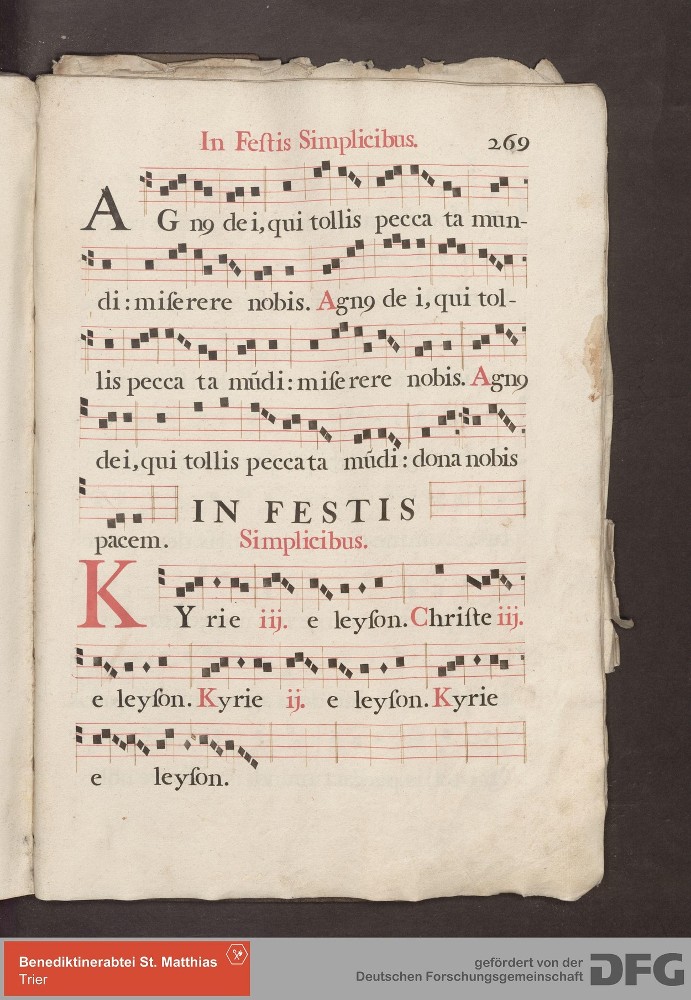 In Feſtis Simplicibus. 269
AG n9 dei, qui tollis pecca ta mun-
di: miſerere nobis. Agn9 de i, qui tol-
lis pecca ta mũdi: miſe rere nobis. Agn9
dei, qui tollis peccata mũdi: dona nobis
pacem. IN FESTIS
Simplicibus.
KYrie iij. e leyſon. Chriſte iij.
e leyſon. Kyrie ij. e leyſon. Kyrie
e leyſon.
Benediktinerabtei St. Matthias
Trier
gefördert von der
Deutschen Forschungsgemeinschaft DFG